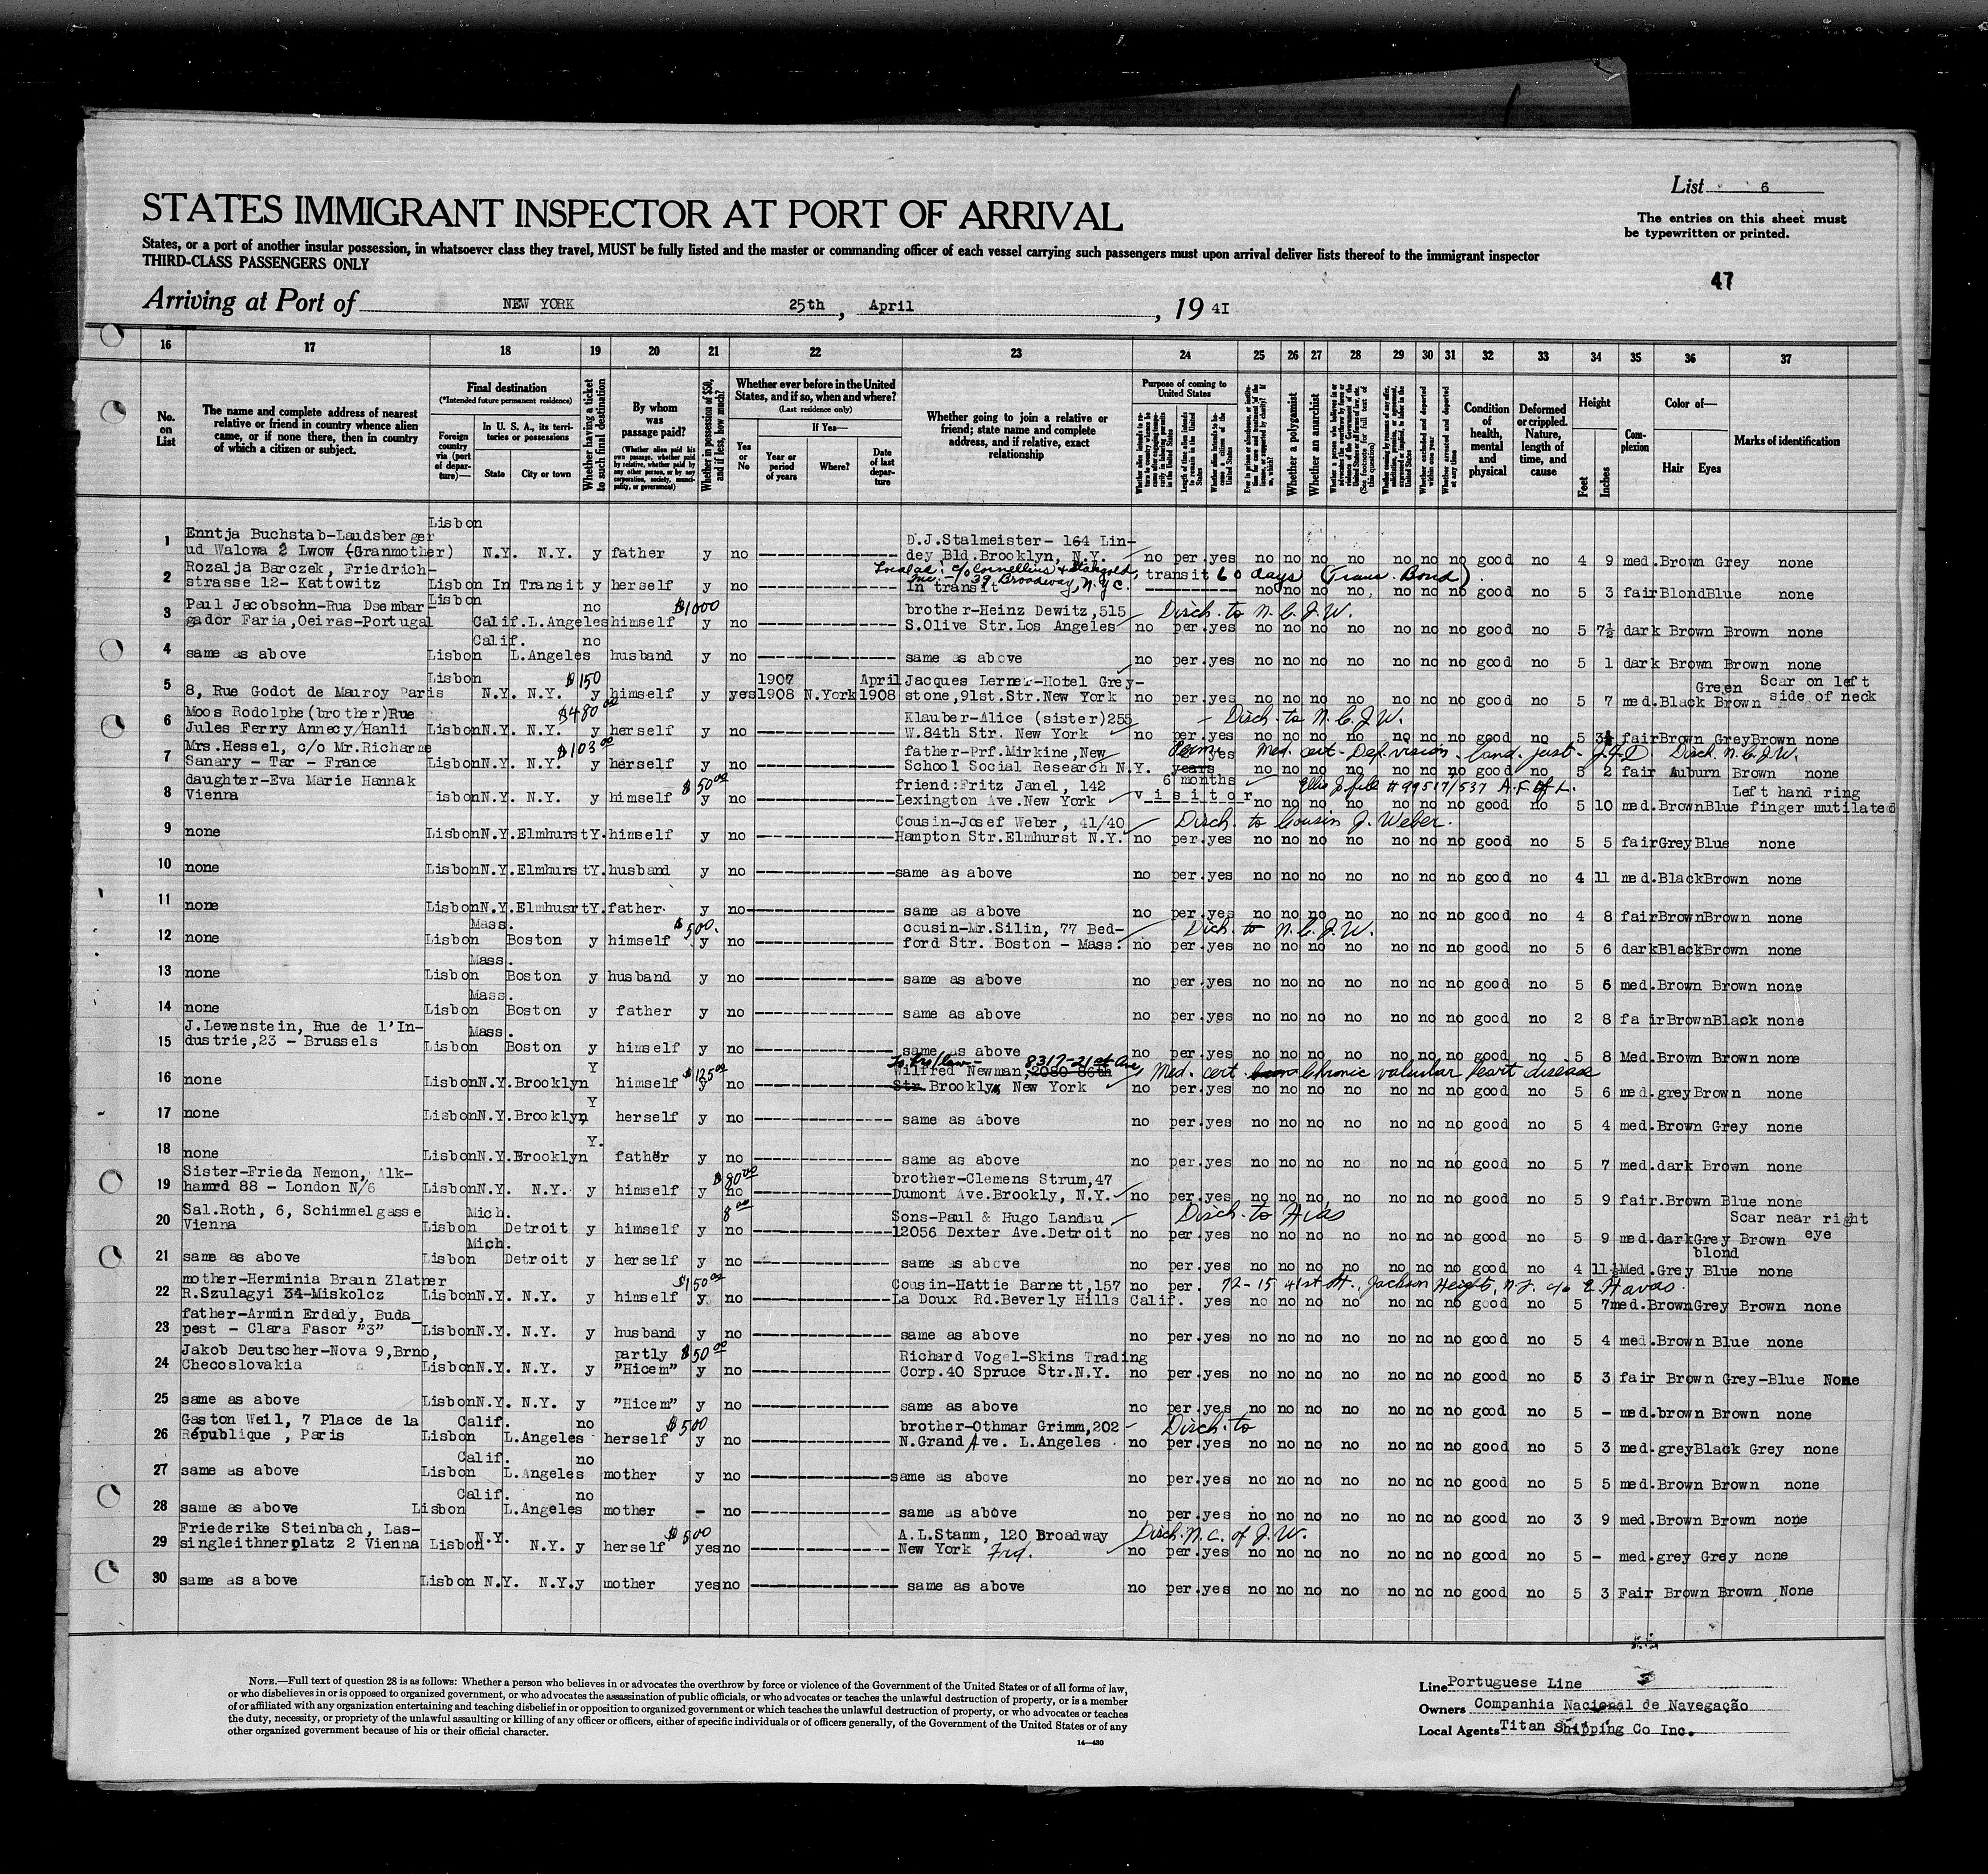 List 6
STATES IMMIGRANT INSPECTOR AT PORT OF ARRIVAL
The entries on this sheet must
be typewritten or printed.
States, or a port of another insular possession, in whatsoever class they travel, MUST be fully listed and the master or commanding officer of each vessel carrying such passengers must upon arrival deliver lists thereof to the immigrant inspector
THIRD-CLASS PASSENGERS ONLY
47
Arriving at Port of NEW YORK 25th, April, 19 41
16 17 18 19 20 21 22 23 24 25 26 27 28 29 30 31 32 33 34 35 36 37
No. on List
The name and complete address of nearest relative or friend in country whence alien came, or if none there, then in country of which a citizen or subject.
Final destination (*Intended future permanent residence)
Foreign country via (port of departure)—
In U. S. A., its territories or possessions
State City or town
Whether having a ticket to such final destination
By whom was passage paid?
(Whether alien paid his own passage, whether paid by relative, whether paid by any other person, or by any corporation, society, municipality, or government)
Whether in possession of $50, and if less, how much?
Whether ever before in the United States, and if so, when and where?
(Last residence only)
Yes or No
If Yes—
Year or period of years Where? Date of last departure
Whether going to join a relative or friend; state name and complete address, and if relative, exact relationship
Purpose of coming to United States
Whether a polygamist
Whether an anarchist
Condition of health, mental and physical
Deformed or crippled. Nature, length of time, and cause
Height Feet Inches
Complexion
Color of— Hair Eyes
Marks of identification
1 Enntja Buchstab-Laudsberger ud Walowa 2 Lwow (Granmother) Lisbon N.Y. N.Y. y father y no D.J.Stalmeister- 164 Lindey Bld.Brooklyn, N.Y. no per.yes no no no no no no no good no 4 9 med.Brown Grey none
2 Rozalja Barczek, Friedrichstrasse 12- Kattowitz Lisbon In Transit y herself y no In transit 39 Broadway, N.Y.C. transit 60 days (Trans. Bond) no no no no no no no good no 5 3 fair Blond Blue none
3 Paul Jacobsohn-Rua Dsembargador Faria,Oeiras-Portugal Lisbon Calif.L.Angeles no himself $1000 y no brother-Heinz Dewitz,515 S.Olive Str.Los Angeles Disch. to N.C.J.W. no per.yes no no no no no no no good no 5 7½ dark Brown Brown none
4 same as above Lisbon Calif. L.Angeles no husband y no same as above no per.yes no no no no no no no good no 5 1 dark Brown Brown none
5 8, Rue Godot de Mauroy Paris Lisbon N.Y. N.Y. $150 y himself y yes 1907 1908 N.York April 1908 Jacques Lerner-Hotel Greystone,91st.Str.New York no per.yes no no no no no no no good no 5 7 med.Black Green Brown Scar on left side of neck
6 Moos Rodolphe(brother)Rue Jules Ferry Annecy/Hanli Lisbon N.Y. N.Y. $480 00 y herself y no Klauber-Alice (sister)255 W.84th Str. New York Disch. to N.C.J.W. no per.yes no no no no no no no good no 5 3½ fair Brown GreyBrown none
7 Mrs.Hessel, c/o Mr.Richarme Sanary - Tar - France Lisbon N.Y. N.Y. $103 00 y herself y no father-Prf.Mirkine,New School Social Research N.Y. Perm. yes years Med. cert. Def. vision Disch. N.C.J.W. no no no no no no no good no 5 2 fair Auburn Brown none
8 daughter-Eva Marie Hannak Vienna Lisbon N.Y. N.Y. y himself $50 00 y no friend:Fritz Janel, 142 Lexington Ave.New York 6 months visitor Ellis I file #99517/537 A.F. of L. no no no no no no no good no 5 10 med.Brown Blue Left hand ring finger mutilated
9 none Lisbon N.Y.Elmhurst Y. himself y no Cousin-Josef Weber, 41/40 Hampton Str.Elmhurst N.Y. Disch. to Cousin J. Weber. no per.yes no no no no no no no good no 5 5 fair Grey Blue none
10 none Lisbon N.Y.Elmhurst Y. husband y no same as above no per.yes no no no no no no no good no 4 11 med.Black Brown none
11 none Lisbon N.Y.Elmhusrt Y. father y no same as above no per.yes no no no no no no no good no 4 8 fair Brown Brown none
12 none Lisbon Mass. Boston y himself $500. y no cousin-Mr.Silin, 77 Bedford Str. Boston - Mass. Disch. to N.C.J.W. no per.yes no no no no no no no good no 5 6 dark Black Brown none
13 none Lisbon Mass. Boston y husband y no same as above no per.yes no no no no no no no good no 5 6 med.Brown Brown none
14 none Lisbon Mass. Boston y father y no same as above no per.yes no no no no no no no good no 2 8 fair Brown Black none
15 J.Lewenstein, Rue de l'Industrie,23 - Brussels Lisbon Mass. Boston y himself y no same as above no per.yes no no no no no no no good no 5 8 Med.Brown Brown none
16 none Lisbon N.Y.Brooklyn Y himself $125 00 y no 8312-21st Ave Wilfred Newman,2080 86th Str.Brooklyn, New York Med. cert. Chronic valvular heart disease no per.yes no no no no no no no good no 5 6 med.grey Brown none
17 none Lisbon N.Y.Brooklyn Y herself y no same as above no per.yes no no no no no no no good no 5 4 med.Brown Grey none
18 none Lisbon N.Y.Brooklyn Y. father y no same as above no per.yes no no no no no no no good no 5 7 med.dark Brown none
19 Sister-Frieda Nemon, Alkhamrd 88 - London N/6 Lisbon N.Y. N.Y. y himself y $80 00 no brother-Clemens Strum,47 Dumont Ave.Brookly, N.Y. no per.yes no no no no no no no good no 5 9 fair.Brown Blue none
20 Sal.Roth, 6, Schimmelgasse Vienna Lisbon Mich. Detroit y himself y 8 00 no Sons-Paul & Hugo Landau 12056 Dexter Ave.Detroit Disch. to Hias no per.yes no no no no no no no good no 5 9 med.dark Grey Brown Scar near right eye
21 same as above Lisbon Mich. Detroit y herself y no same as above no per.yes no no no no no no no good no 4 11½ Med. blond Grey Blue none
22 mother-Herminia Braun Zlatner R.Szulagyi 34-Miskolcz Lisbon N.Y. N.Y. y himself $150 00 y no Cousin-Hattie Barnett,157 La Doux Rd.Beverly Hills Calif. no per. yes 72-15 41st St., Jackson Heights, c/o E. Havas. no no no no no no no good no 5 7 med.Brown Grey Brown none
23 father-Armin Erdady, Budapest - Clara Fasor "3" Lisbon N.Y. N.Y. y husband y no same as above no per.yes no no no no no no no good no 5 4 med.Brown Blue none
24 Jakob Deutscher-Nova 9,Brno, Checoslovakia Lisbon N.Y. N.Y. y partly "Hicem" $50 00 y no Richard Vogel-Skins Trading Corp.40 Spruce Str.N.Y. no per.yes no no no no no no no good no 5 3 fair Brown Grey-Blue None
25 same as above Lisbon N.Y. N.Y. y "Hicem" y no same as above no per.yes no no no no no no no good no 5 - med.brown Brown none
26 Gaston Weil, 7 Place de la République , Paris Lisbon Calif. L.Angeles no herself $500 y no brother-Othmar Grimm,202 N.Grand Ave. L.Angeles Disch. to no per.yes no no no no no no no good no 5 3 med.grey Black Grey none
27 same as above Lisbon Calif. L.Angeles no mother y no same as above no per.yes no no no no no no no good no 5 5 med.Brown Brown none
28 same as above Lisbon Calif. L.Angeles no mother - no same as above no per.yes no no no no no no no good no 3 9 med.Brown Brown none
29 Friederike Steinbach, Lassingleithnerplatz 2 Vienna Lisbon N.Y. N.Y. y herself $500 yes no A.L.Stamm, 120 Broadway New York Frd. Disch. N.C. of J.W. no per.yes no no no no no no no good no 5 - med.grey Grey none
30 same as above Lisbon N.Y. N.Y. y mother yes no same as above no per.yes no no no no no no no good no 5 3 Fair Brown Brown None
NOTE.—Full text of question 28 is as follows: Whether a person who believes in or advocates the overthrow by force or violence of the Government of the United States or of all forms of law,
or who disbelieves in or is opposed to organized government, or who advocates the assassination of public officials, or who advocates or teaches the unlawful destruction of property, or is a member
of or affiliated with any organization entertaining and teaching disbelief in or opposition to organized government or which teaches the unlawful destruction of property, or who advocates or teaches
the duty, necessity, or propriety of the unlawful assaulting or killing of any officer or officers, either of specific individuals or of officers generally, of the Government of the United States or of any
other organized government because of his or their official character.
14—430
Line Portuguese Line
Owners Companhia Nacional de Navegação
Local Agents Titan Shipping Co Inc.